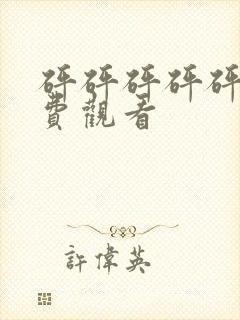 砰砰砰砰砰
費觀看
許偉英